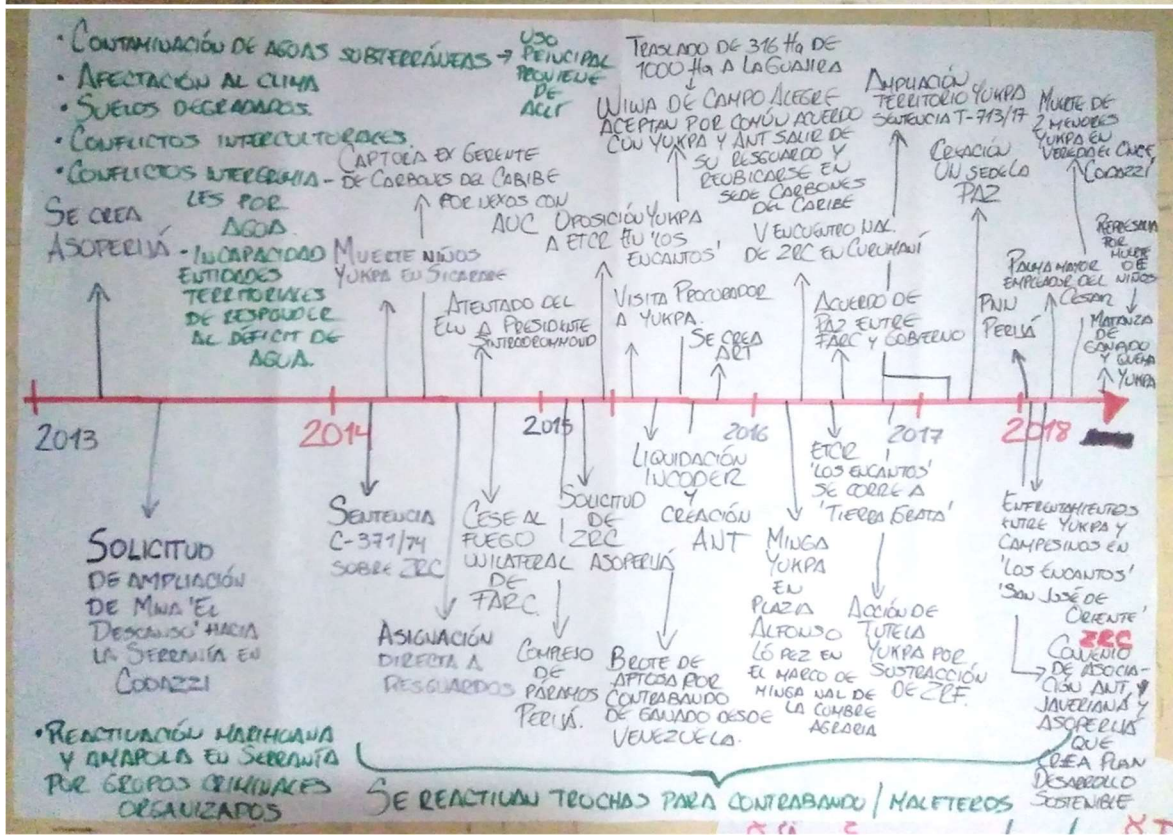 • CONTAMINACIÓN DE AGUAS SUBTERRÁNEAS → USO
PRINCIPAL
PROVIENE
DE
ALLÍ
• AFECTACIÓN AL CLIMA
• SUELOS DEGRADADOS.
• CONFLICTOS INTERCULTURALES.
• CONFLICTOS INTERGREMIA-
LES POR
AGUA.
- INCAPACIDAD
ENTIDADES
TERRITORIALES
DE RESPONDER
AL DÉFICIT DE
AGUA.
SE CREA
ASOPERIJÁ
CAPTURA EX GERENTE
DE CARBONES DEL CARIBE
POR NEXOS CON
AUC
MUERTE NIÑOS
YUKPA EN SICARARE
ATENTADO DEL
ELN A PRESIDENTE
SINTRADRUMMOND
OPOSICIÓN YUKPA
A ETCR EN 'LOS
ENCANTOS'
VISITA PROCURADOR
A YUKPA.
SE CREA
ART
TRASLADO DE 316 Ha DE
1000 Ha A LA GUAJIRA
WIWA DE CAMPO ALEGRE
ACEPTAN POR COMÚN ACUERDO
CON YUKPA Y ANT SALIR DE
SU RESGUARDO Y
REUBICARSE EN
SEDE CARBONES
DEL CARIBE
V ENCUENTRO NAL.
DE ZRC EN CURUMANÍ
ACUERDO DE
PAZ ENTRE
FARC Y GOBIERNO
AMPLIACIÓN
TERRITORIO YUKPA
SENTENCIA T-713/17
CREACIÓN
UN SEDE LA
PAZ
PNN
PERIJÁ
PALMA MAYOR
EMPLEADOR DEL
CESAR
MUERTE DE
2 MENORES
YUKPA EN
VEREDA EL CINCE,
CODAZZI
REPRESALIA
POR
MUERTE
DE
NIÑOS
MATANZA
DE
GANADO
Y QUEMA
YUKPA
2013
2014
2015
2016
2017
2018
SOLICITUD
DE AMPLIACIÓN
DE MINA 'EL
DESCANSO' HACIA
LA SERRANÍA EN
CODAZZI
SENTENCIA
C-371/14
SOBRE ZRC
ASIGNACIÓN
DIRECTA A
RESGUARDOS
CESE AL
FUEGO
UNILATERAL
DE
FARC.
COMPLEJO
DE
PÁRAMOS
PERIJÁ.
SOLICITUD
DE
ZRC
ASOPERIJÁ
BROTE DE
AFTOSA POR
CONTRABANDO
DE GANADO DESDE
VENEZUELA.
LIQUIDACIÓN
INCODER
Y
CREACIÓN
ANT
MINGA
YUKPA
EN
PLAZA
ALFONSO
LÓPEZ EN
EL MARCO DE
MINGA NAL DE
LA CUMBRE
AGRARIA
ETCR
'LOS ENCANTOS'
SE CORRE A
'TIERRA GRATA'
ACCIÓN DE
TUTELA
YUKPA POR
SUSTRACCIÓN
DE ZRF.
ENFRENTAMIENTOS
ENTRE YUKPA Y
CAMPESINOS EN
'LOS ENCANTOS'
'SAN JOSÉ DE
ORIENTE'
ZRC
CONVENIO
DE ASOCIA-
CIÓN ANT, Y
JAVERIANA Y
ASOPERIJÁ
QUE
CREA PLAN
DESARROLLO
SOSTENIBLE
• REACTIVACIÓN MARIHUANA
Y AMAPOLA EN SERRANÍA
POR GRUPOS CRIMINALES
ORGANIZADOS
SE REACTIVAN TROCHAS PARA CONTRABANDO / MALETEROS